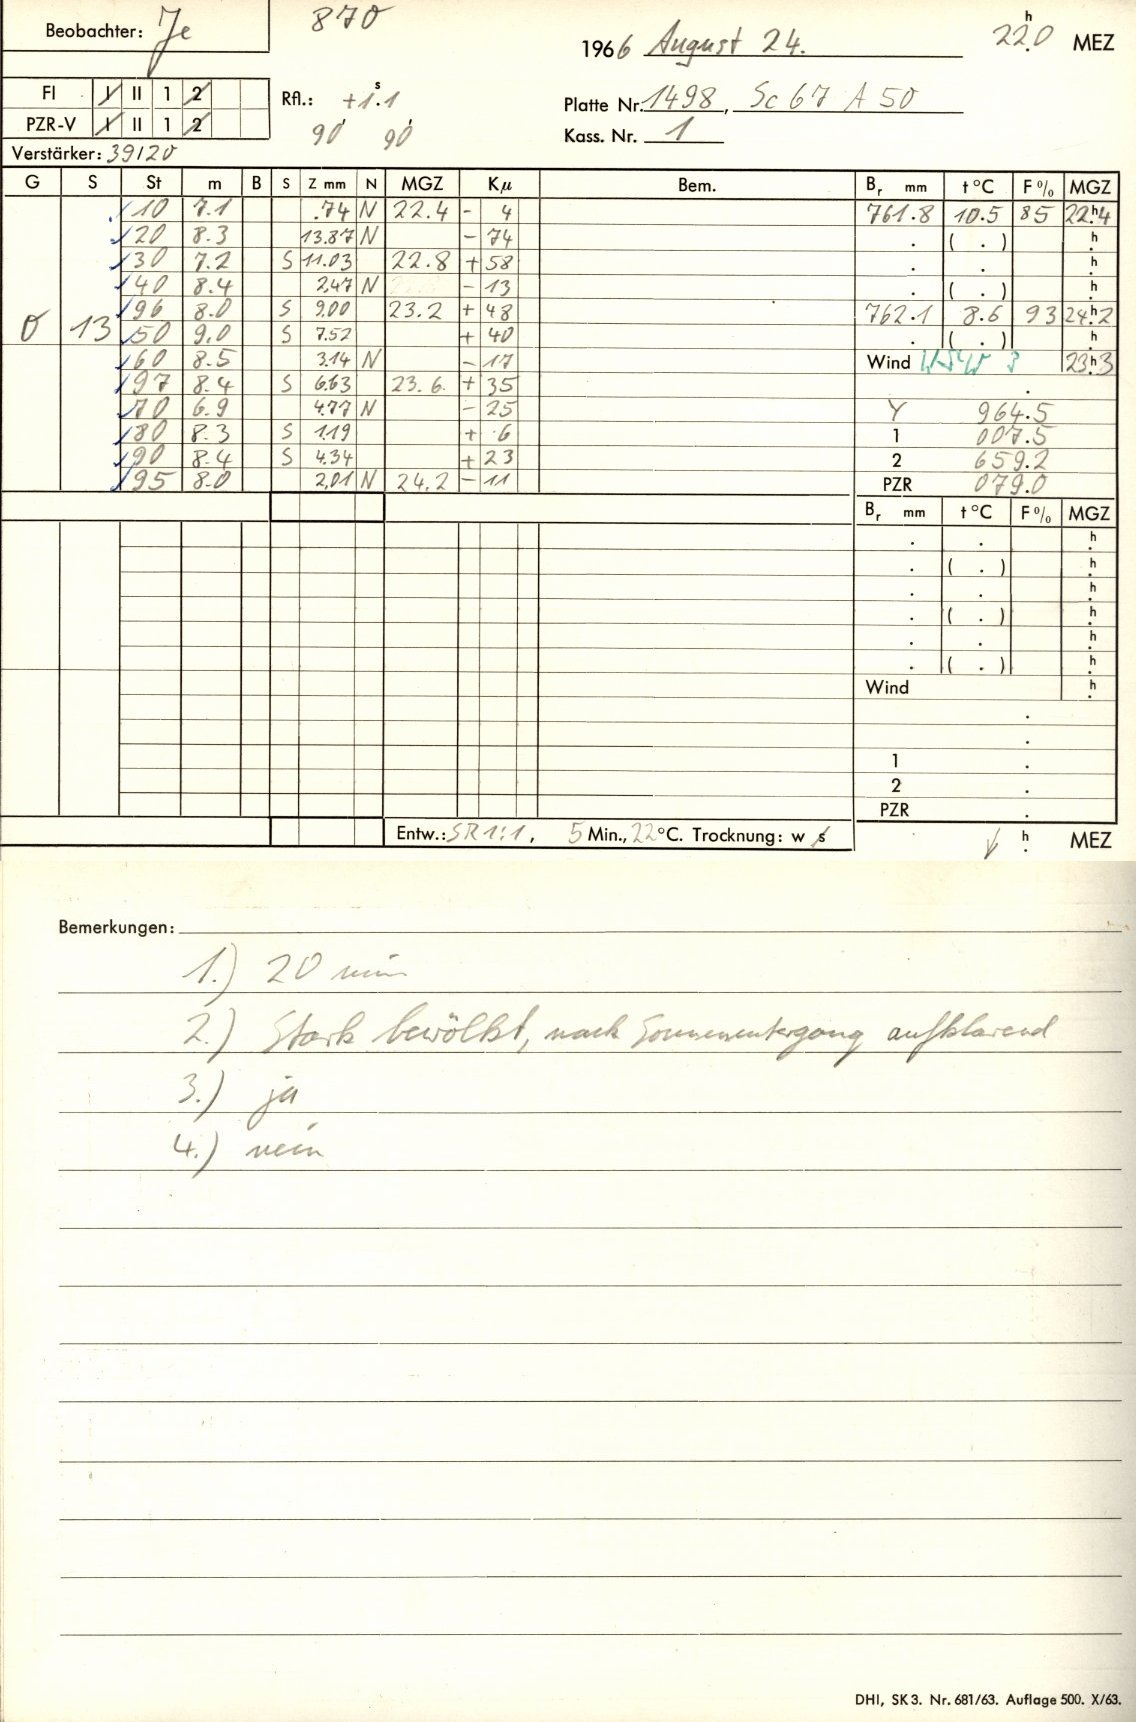 Beobachter: Je 870 1966 August 24. 22.0 h MEZ
FI I II 1 2 Rfl.: +1.1 s Platte Nr. 1498, Sc 67 A 50
PZR-V I II 1 2 90' 90' Kass. Nr. 1
Verstärker: 39120
G S St m B S Z mm N MGZ Kμ Bem. Br mm t °C F % MGZ
10 7.1 .74 N 22.4 - 4 761.8 10.5 85 22.h4
20 8.3 13.87 N - 74 . ( . ) h
30 7.2 S 11.03 22.8 + 58 . . h
40 8.4 2,47 N - 13 . ( . ) h
96 8.0 S 9,00 23.2 + 48 762.1 8.6 93 24.h2
0 13 50 9.0 S 7.52 + 40 . ( . ) h
60 8.5 3.14 N - 17 Wind WSW 3 23.h3
97 8.4 S 6.63 23.6 + 35 .
70 6.9 4.77 N - 25 Y 964.5
80 8.3 S 1.19 + 6 1 007.5
90 8.4 S 4.34 + 23 2 659.2
95 8.0 2,01 N 24.2 - 11 PZR 079.0
Br mm t °C F % MGZ
. . h
. ( . ) h
. . h
. ( . ) h
. . h
. ( . ) h
Wind h
.
.
1 .
2 .
PZR .
Entw.: SR 1:1, 5 Min., 22 °C. Trocknung: w s h MEZ
Bemerkungen:
1.) 20 min
2.) Stark bewölkt, nach Sonnenuntergang aufklarend
3.) ja
4.) nein
DHI, SK 3. Nr. 681/63. Auflage 500. X/63.